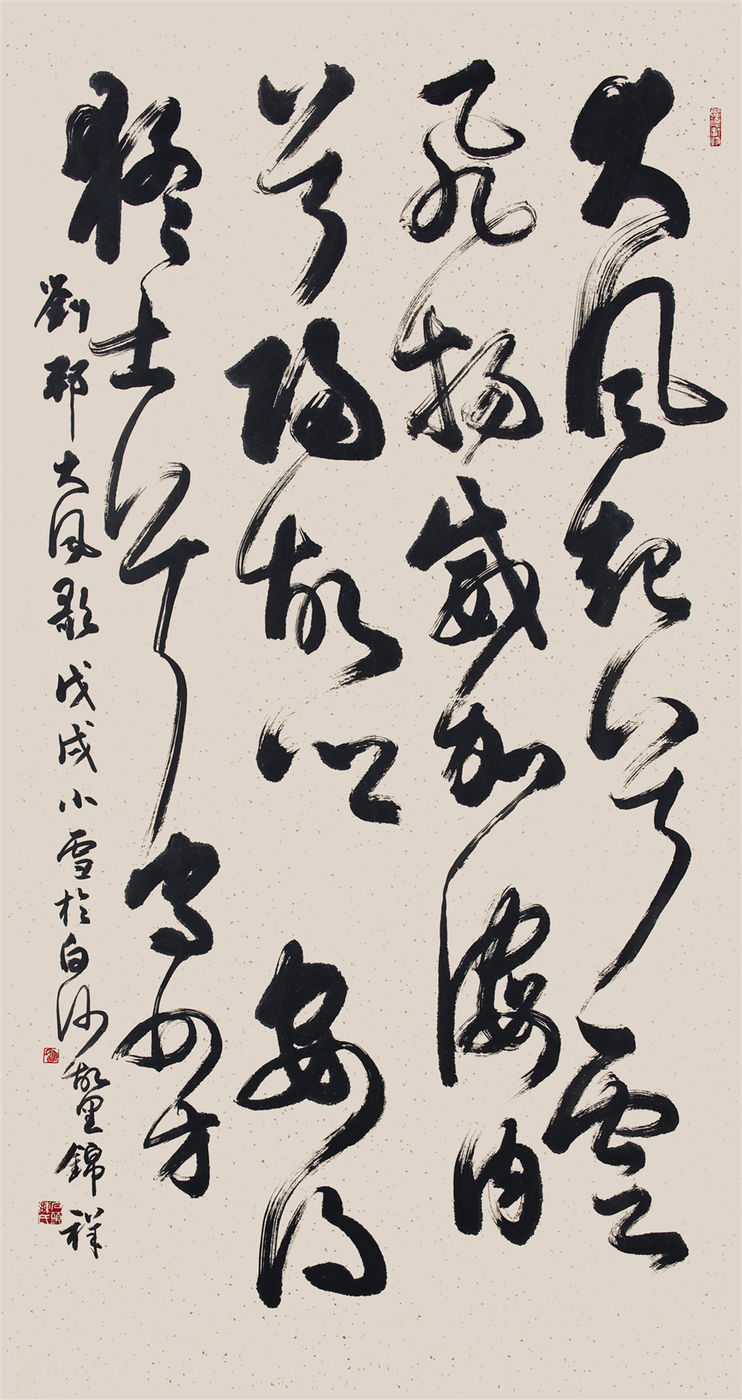 大風起兮雲
飛揚威加海内
兮歸故鄉安得
猛士兮守四方
劉邦大風歌戊戌小雪於白沙故里錦祥